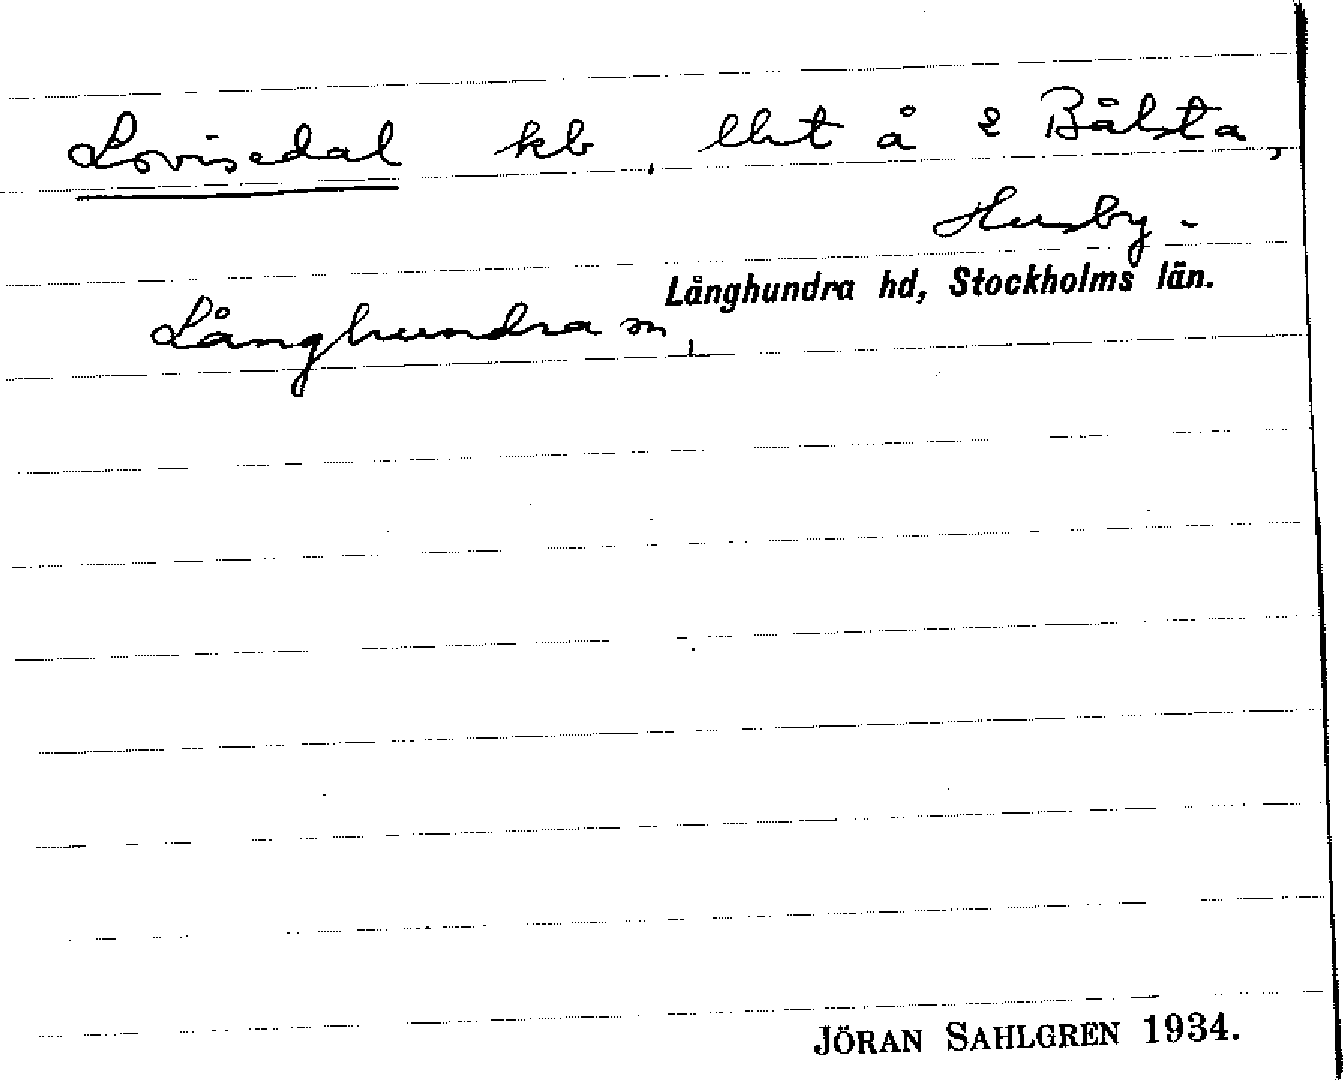 Lovisedal kb lht å 2 Bålsta,
Husby-
Långhundra hd, Stockholms län.
Långhundra sn
JÖRAN SAHLGREN 1934.